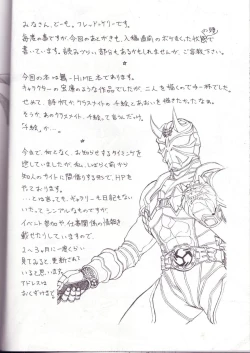 みなさん、どーも。フレッドケリーです。
毎度の事ですが、今回のあとがきも、入稿直前のボケました状態で
書いています。読みづらい部分もあるかもしれませんが、ご容赦下さい。
☆
今回の本は舞-HiME本であります。
キャラクターの宝庫のような作品でしたが、二人を描くので十一杯でした。
せめて、詩帆か、クリスナイトの千絵とあおいを描きたかったなぁ。
そうか、あのクリスナイト、千絵って言うんだけ。
千絵か…。
☆
さて、何となく、お知らせするタイミングを
逃していましたが、私、しばらく前から
知人のサイトに間借りする形で、HPを
やっております。
…とは言っても、ギャラリーも日記もない
いたってシンプルなものですが、
イベント参加や、仕事関係の情報を
載せたりしていますので、
2〜3ヶ月に一度くらい
見てみると、更新されて
いると思います。
アドレスは
おくずけまで